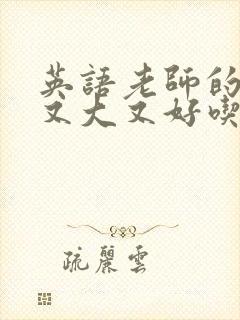 英語老師的
又大又好喫
疏麗雲